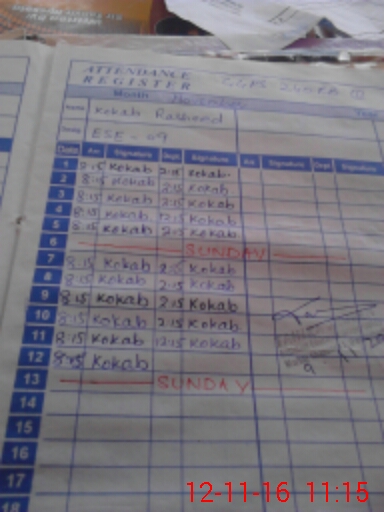 ATTENDANCE
REGISTER
Month November
Name Kokab Rasheed
ESE - 09
Date Arr. Signature Dept. Signature Arr. Signature Dept. Signature
1 8:15 Kokab 2:15 Kokab
2 8:15 Kokab 2:15 Kokab
3 8:15 Kokab 2:15 Kokab
4 8:15 Kokab 12:15 Kokab
5 8:15 Kokab 2:15 Kokab
6 SUNDAY
7 8:15 Kokab 2:15 Kokab
8 8:15 Kokab 2:15 Kokab
9 8:15 Kokab 2:15 Kokab
10 8:15 Kokab 2:15 Kokab
11 8:15 Kokab 12:15 Kokab
12 8:15 Kokab
13 SUNDAY
14
15
16
17
18
12-11-16 11:15